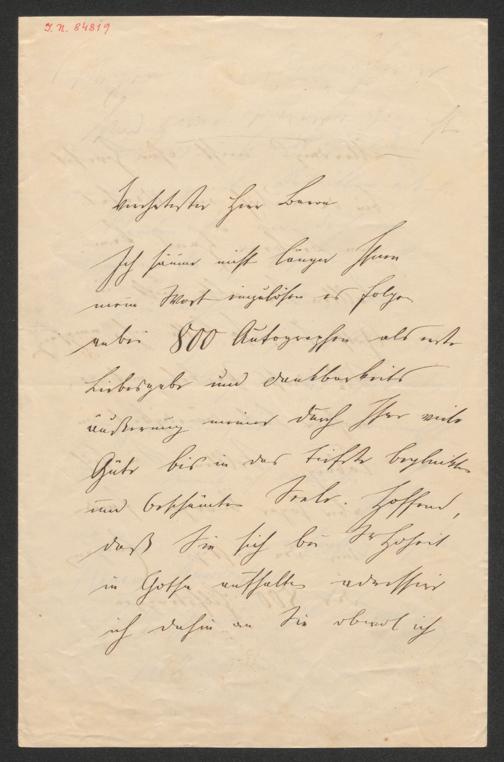 I. N. 84819
Verehrtester Herr Baron
Ich säume nicht länger Ihnen
mein Wort einzulösen es folgen
anbei 800 Autographen als erste
Liebesgabe und Dankbarkeits
äußerung meiner durch Ihre viele
Güte bis in das tiefste beglückte
und beschämte Seele. Hoffend,
daß Sie sich bei Sr Hoheit
in Gotha aufhalten adressire
ich dahin an Sie obwol ich